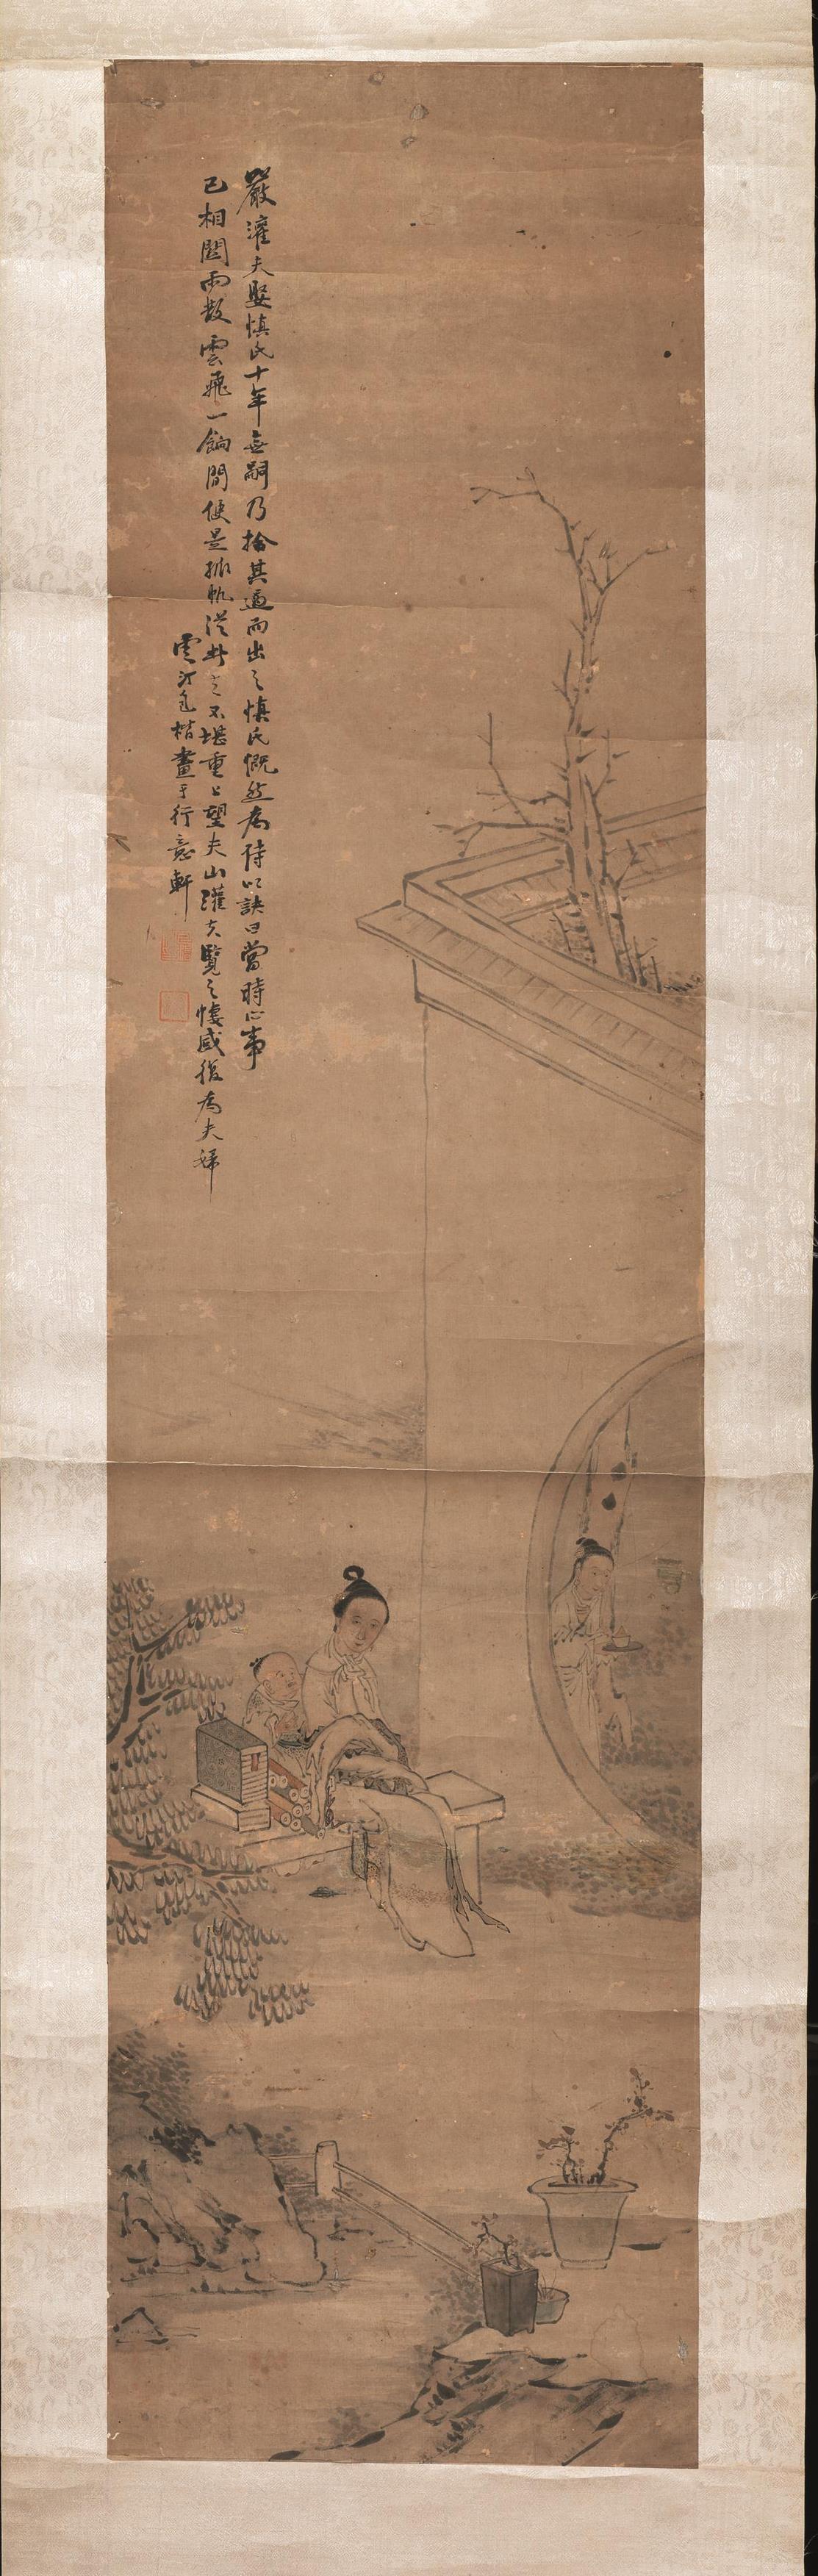 嚴灌夫娶慎氏十年無嗣乃拾其過而出之慎氏慨然為詩以訣曰當時心事
已相關雨散雲飛一餉間便是孤帆從此去不堪重上望夫山灌夫覽之悽感復為夫婦
雲汀包楷畫于行意軒